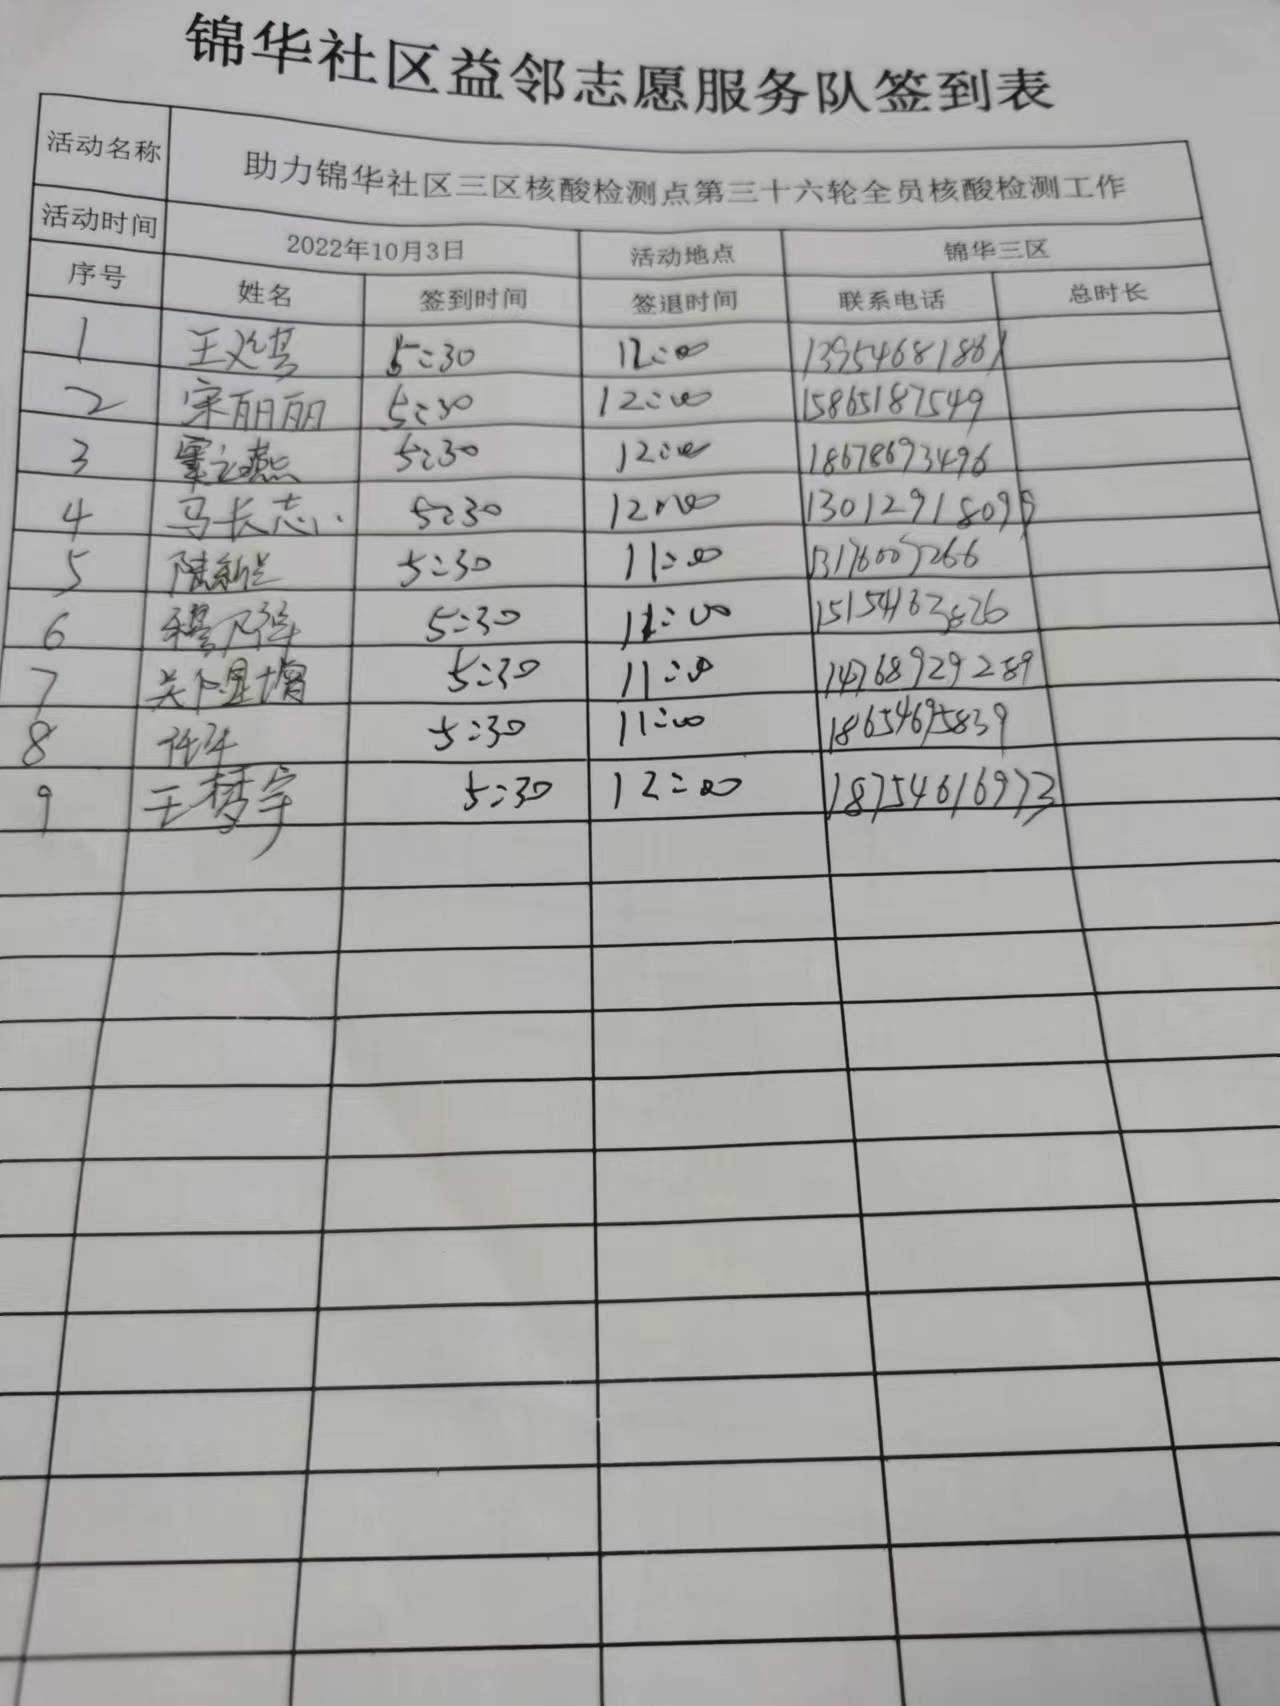 锦华社区益邻志愿服务队签到表
活动名称 助力锦华社区三区核酸检测点第三十六轮全员核酸检测工作
活动时间 2022年10月3日 活动地点 锦华三区
序号 姓名 签到时间 签退时间 联系电话 总时长
1 5:30 12:00
2 宋丽丽 5:30 12:00 15865187549
3 5:30 12:00 18678693496
4 马长志 5:30 12:00
5 5:30 11:00
6 5:30 11:00 15154163826
7 关阳增 5:30 11:00 14768929289
8 5:30 11:00 18654695839
9 王梦宇 5:30 12:00 18754616973